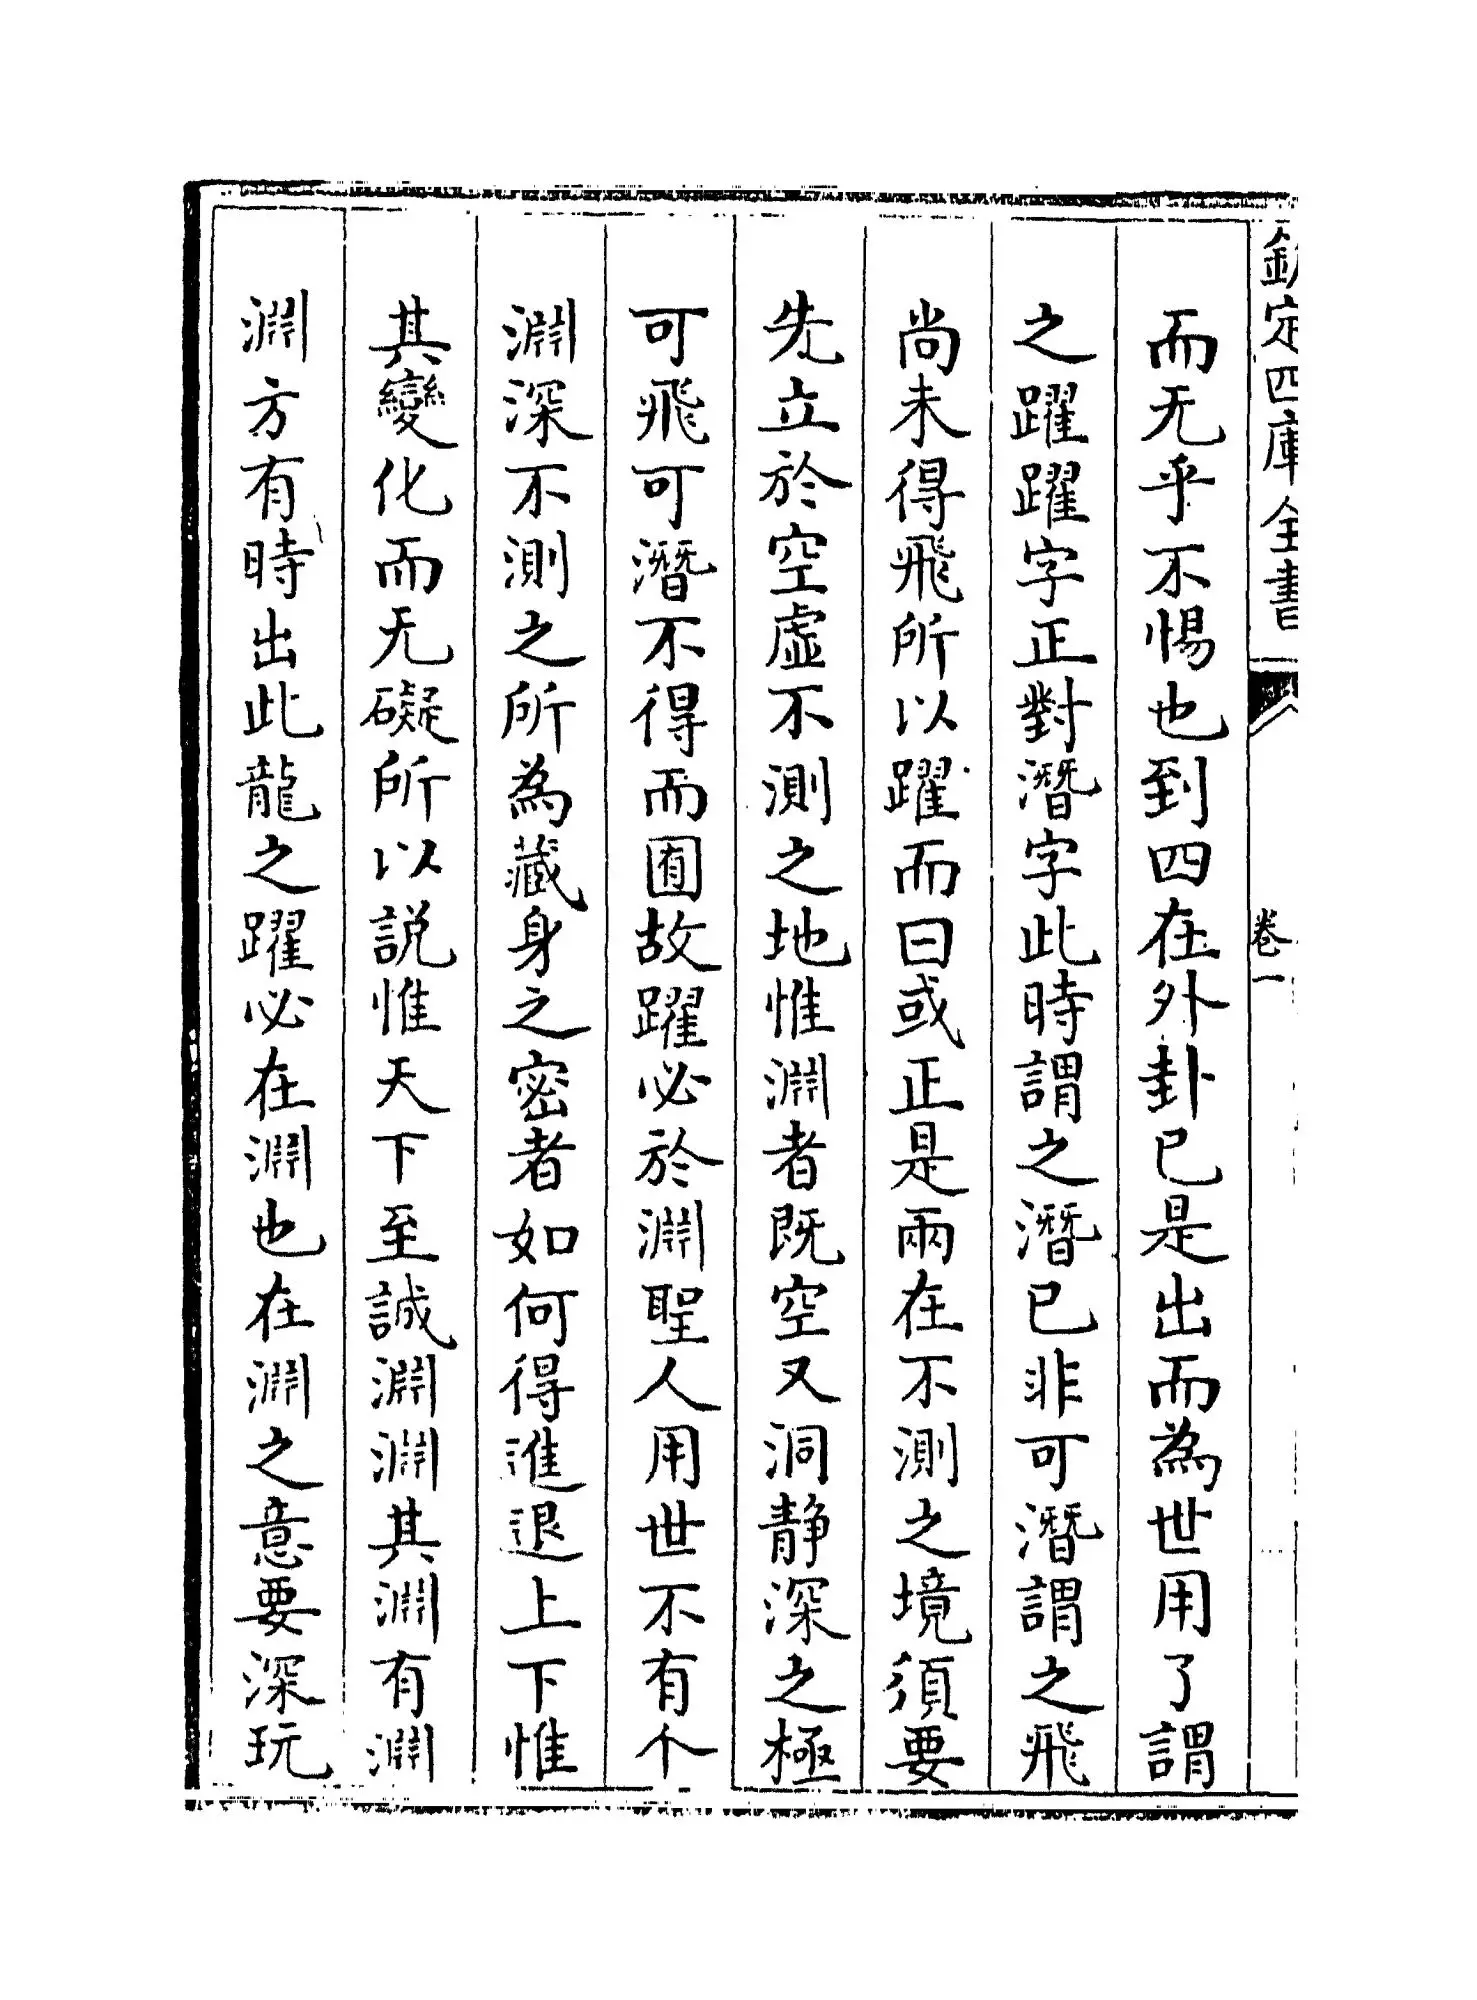 欽定四庫全書
卷一
而无乎不惕也到四在外卦已是出而為世用了謂
之躍躍字正對潛字此時謂之潛已非可潛謂之飛
尚未得飛所以躍而曰或正是兩在不測之境須要
先立於空虛不測之地惟淵者既空又洞静深之極
可飛可潛不得而囿故躍必於淵聖人用世不有个
淵深不測之所為藏身之密者如何得進退上下惟
其變化而无礙所以說惟天下至誠淵淵其淵有淵
淵方有時出此龍之躍必在淵也在淵之意要深玩